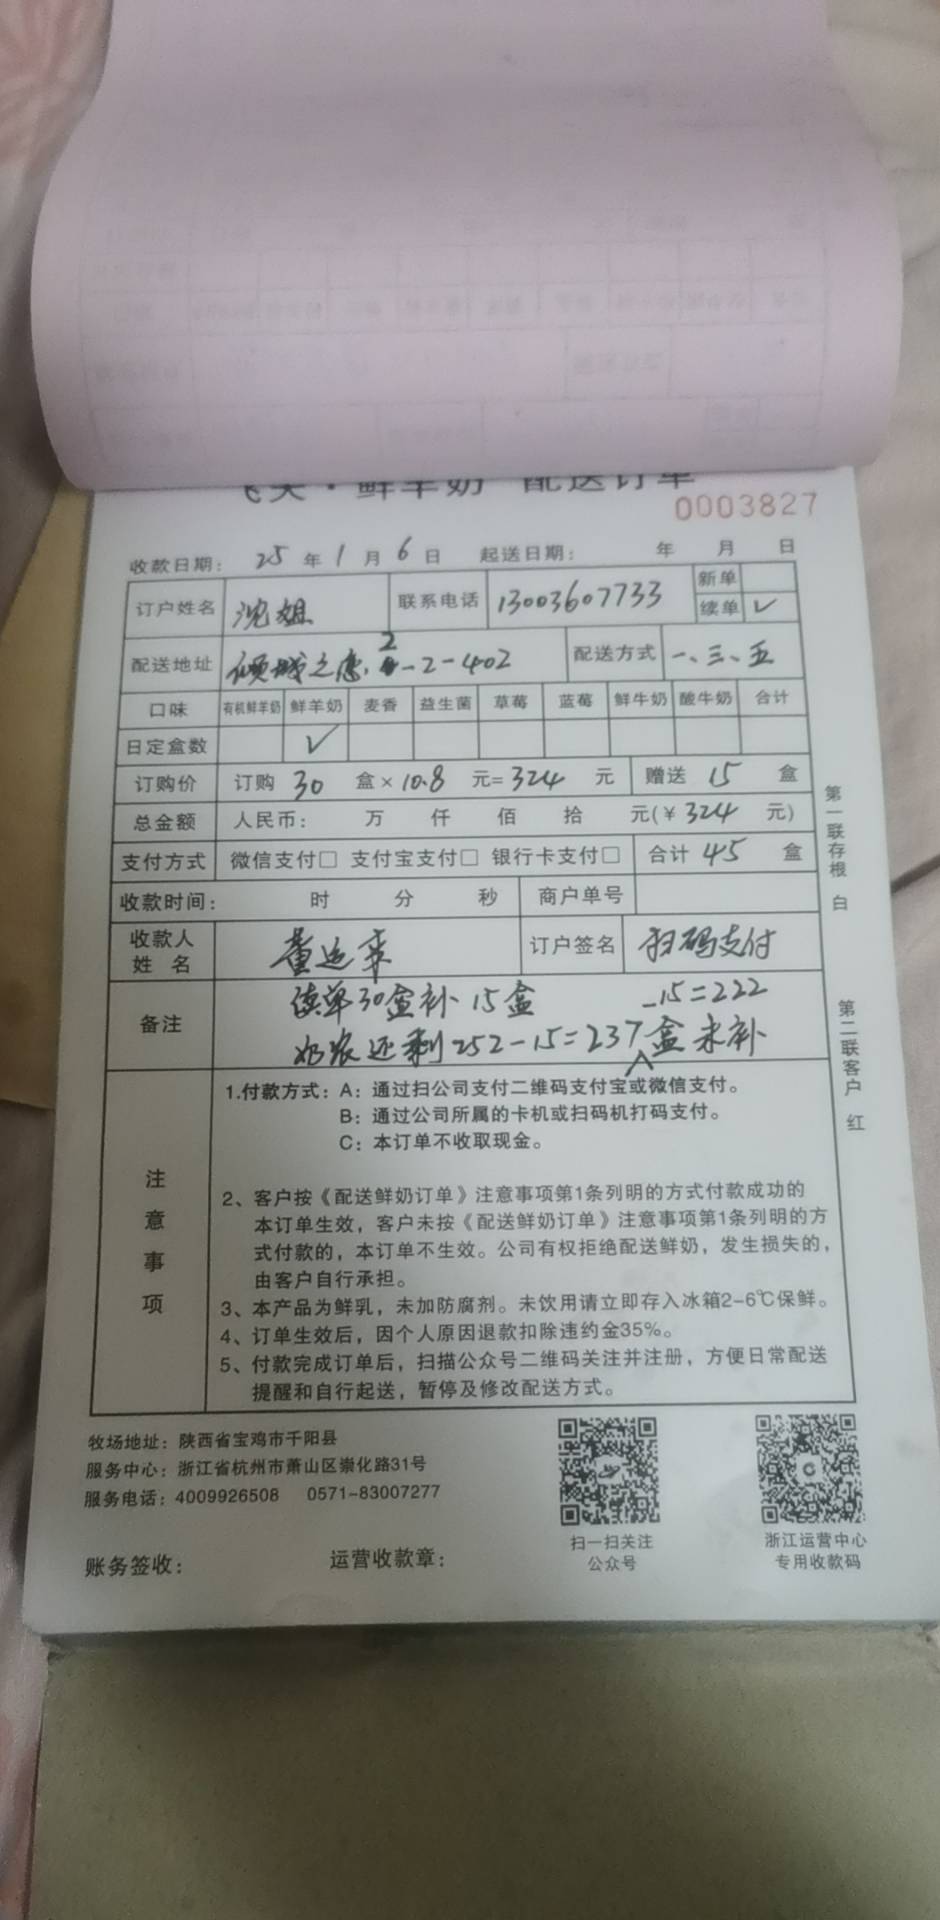 飞天·鲜羊奶 配送订单
0003827
收款日期： 25 年 1 月 6 日 起送日期： 年 月 日
订户姓名 沈姐 联系电话 13003607733 新单
续单 ✓
配送地址 倾城之恋、2-2-402 配送方式 一、三、五
口味 有机鲜羊奶 鲜羊奶 麦香 益生菌 草莓 蓝莓 鲜牛奶 酸牛奶 合计
日定盒数 ✓
订购价 订购 30 盒×10.8 元=324 元 赠送 15 盒
总金额 人民币： 万 仟 佰 拾 元(￥324 元)
支付方式 微信支付□ 支付宝支付□ 银行卡支付□ 合计 45 盒
收款时间： 时 分 秒 商户单号
收款人
姓 名 董运来 订户签名 扫码支付
备注 续单30盒补15盒 -15=222
奶农还剩252-15=237盒未补
注意事项
1.付款方式：A：通过扫公司支付二维码支付宝或微信支付。
B：通过公司所属的卡机或扫码机打码支付。
C：本订单不收取现金。
2、客户按《配送鲜奶订单》注意事项第1条列明的方式付款成功的
本订单生效，客户未按《配送鲜奶订单》注意事项第1条列明的方
式付款的，本订单不生效。公司有权拒绝配送鲜奶，发生损失的，
由客户自行承担。
3、本产品为鲜乳，未加防腐剂。未饮用请立即存入冰箱2-6℃保鲜。
4、订单生效后，因个人原因退款扣除违约金35%。
5、付款完成订单后，扫描公众号二维码关注并注册，方便日常配送
提醒和自行起送，暂停及修改配送方式。
第一联存根 白
第二联客户 红
牧场地址：陕西省宝鸡市千阳县
服务中心：浙江省杭州市萧山区崇化路31号
服务电话：4009926508 0571-83007277
扫一扫关注
公众号
浙江运营中心
专用收款码
账务签收： 运营收款章：